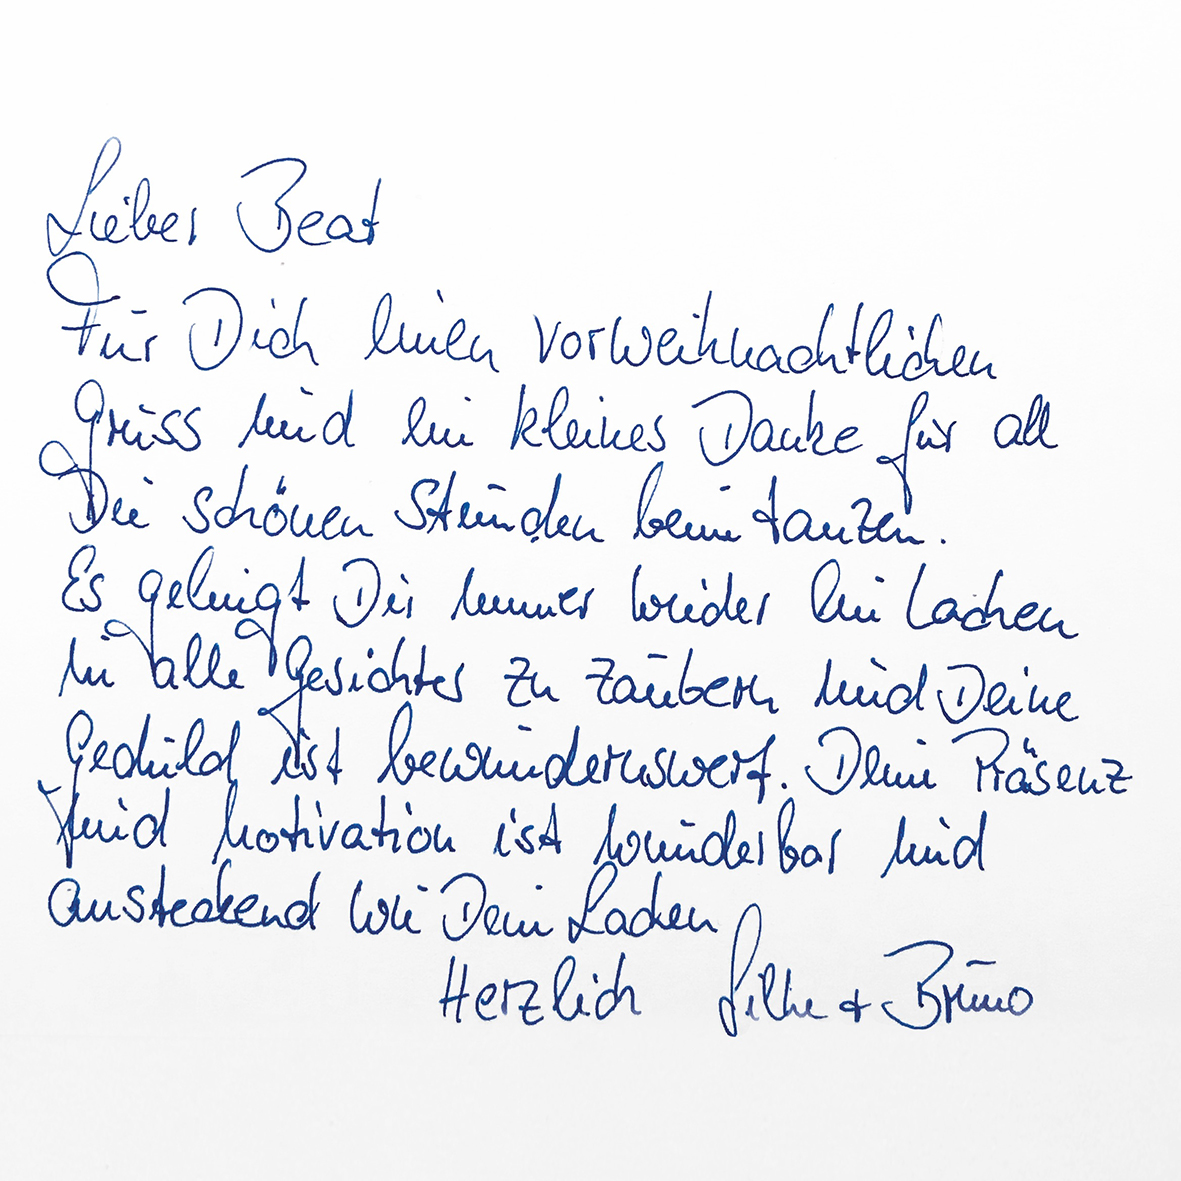 Lieber Beat
Für Dich einen vorweihnachtlichen
Gruss und ein kleines Danke für all
Die schönen Stunden beim tanzen.
Es gelingt Dir immer wieder ein Lachen
in alle Gesichter zu zaubern und Deine
Geduld ist bewundernswert. Deine Präsenz
und Motivation ist wunderbar und
ansteckend wie Dein Lachen
Herzlich Silke + Bruno